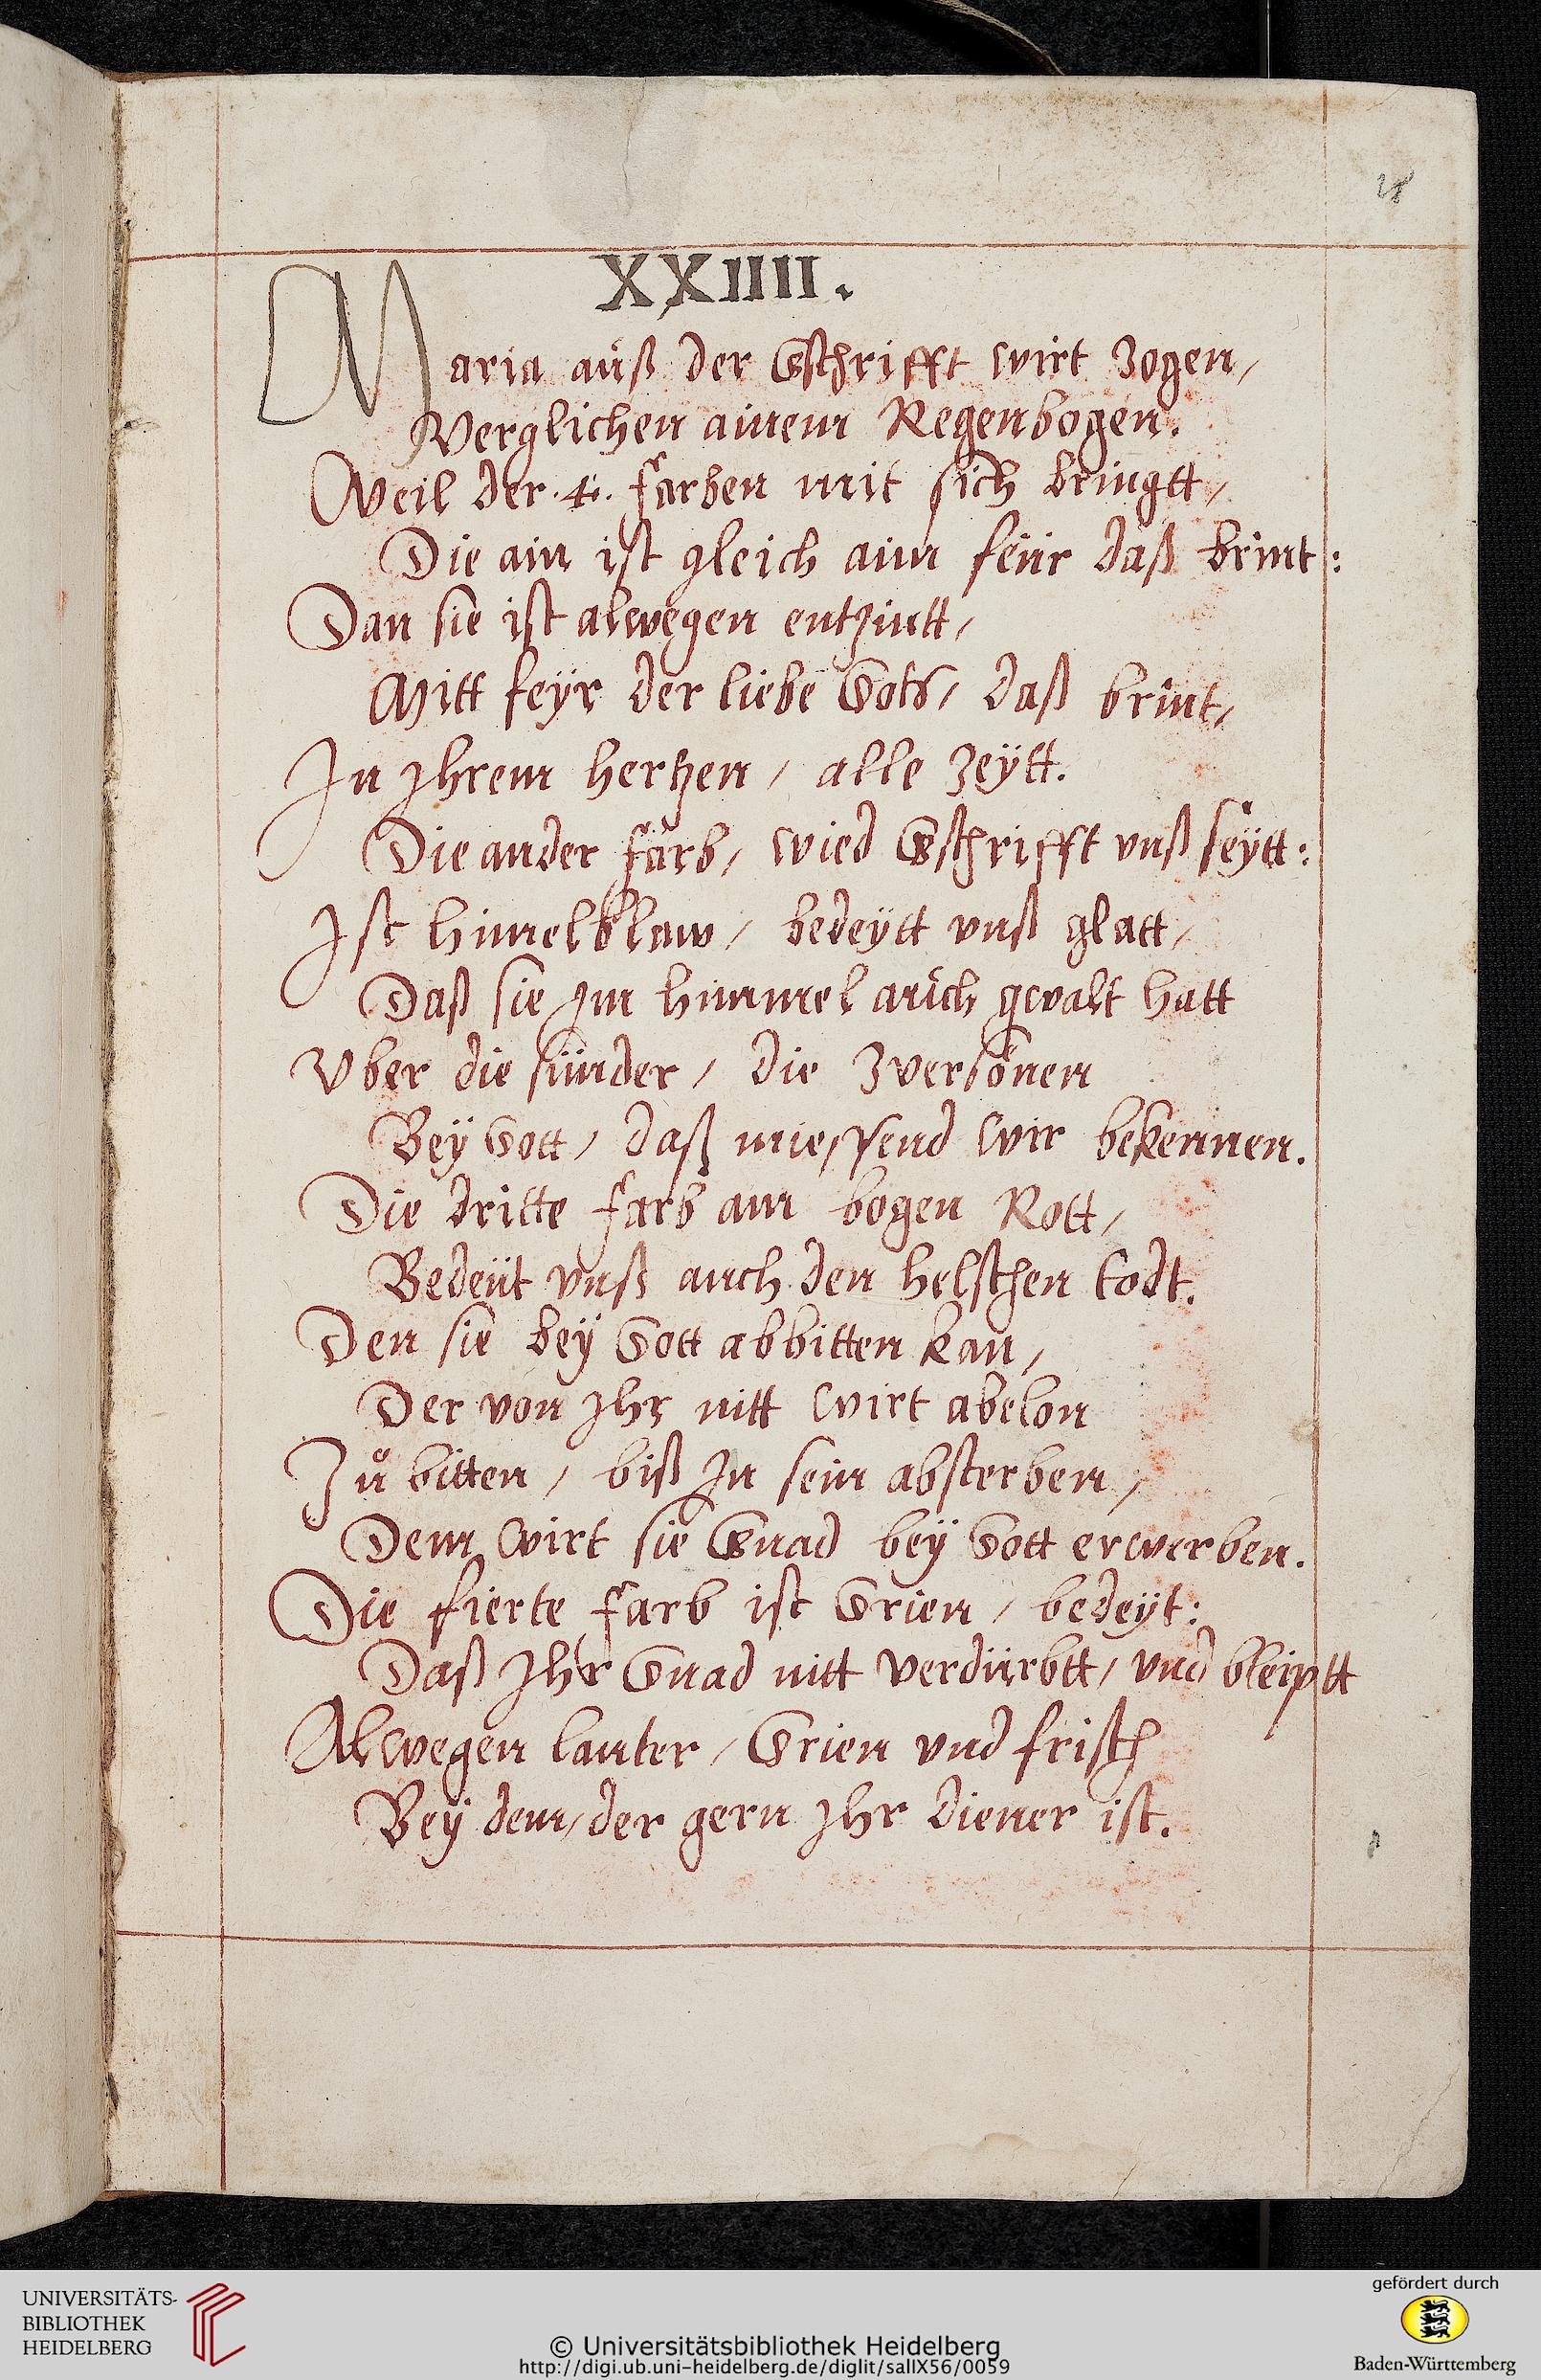 28
XXIIII.
Maria auß der Gschrifft wirt zogen,
Verglichen ainem Regenbogen.
Weil der .4. farben mit sich bringtt,
Die ain ist gleich aim feür daß brint:
Dan sie ist alwegen entzintt,
Mitt feÿr der liebe Gots, daß brint,
In Ihrem hertzen, alle zeÿtt.
Die ander farb, wied Gschrifft vnß seÿtt:
Ist himelblaw, bedeÿtt vnß glatt,
Daß sie Im himmel auch gwalt hatt
Vber die sünder, die zversönen
Beÿ Gott, daß miessend wir bekennen.
Die dritte farb am bogen Rott,
Bedeüt vnß auch den helschen todt.
Den sie beÿ Gott abbitten kan,
Der von Ihr nitt wirt abelon
Zů bitten, biß In sein absterben,
Dem wirt sie Gnad beÿ Gott erwerben.
Die fierte farb ist Grien, bedeÿt:
Daß Ihr Gnad nitt verdürbtt, vnd bleiptt
Alwegen lauter, Grien vnd frisch
Beÿ dem, der gern Ihr diener ist.
UNIVERSITÄTS-
BIBLIOTHEK
HEIDELBERG
© Universitätsbibliothek Heidelberg
http://digi.ub.uni-heidelberg.de/diglit/salIX56/0059
gefördert durch
Baden-Württemberg